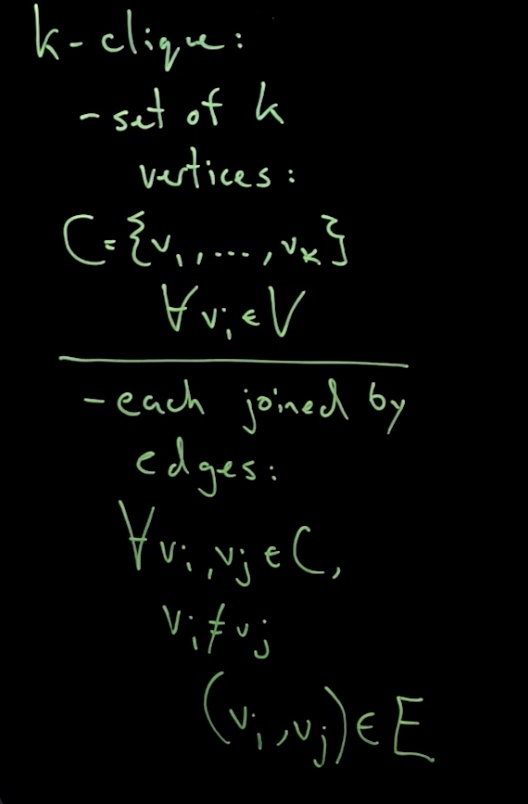 k-clique:
- set of k
vertices:
C={v₁,...,vₖ}
∀ vᵢ ∈ V
- each joined by
edges:
∀ vᵢ,vⱼ ∈ C,
vᵢ ≠ vⱼ
(vᵢ,vⱼ) ∈ E